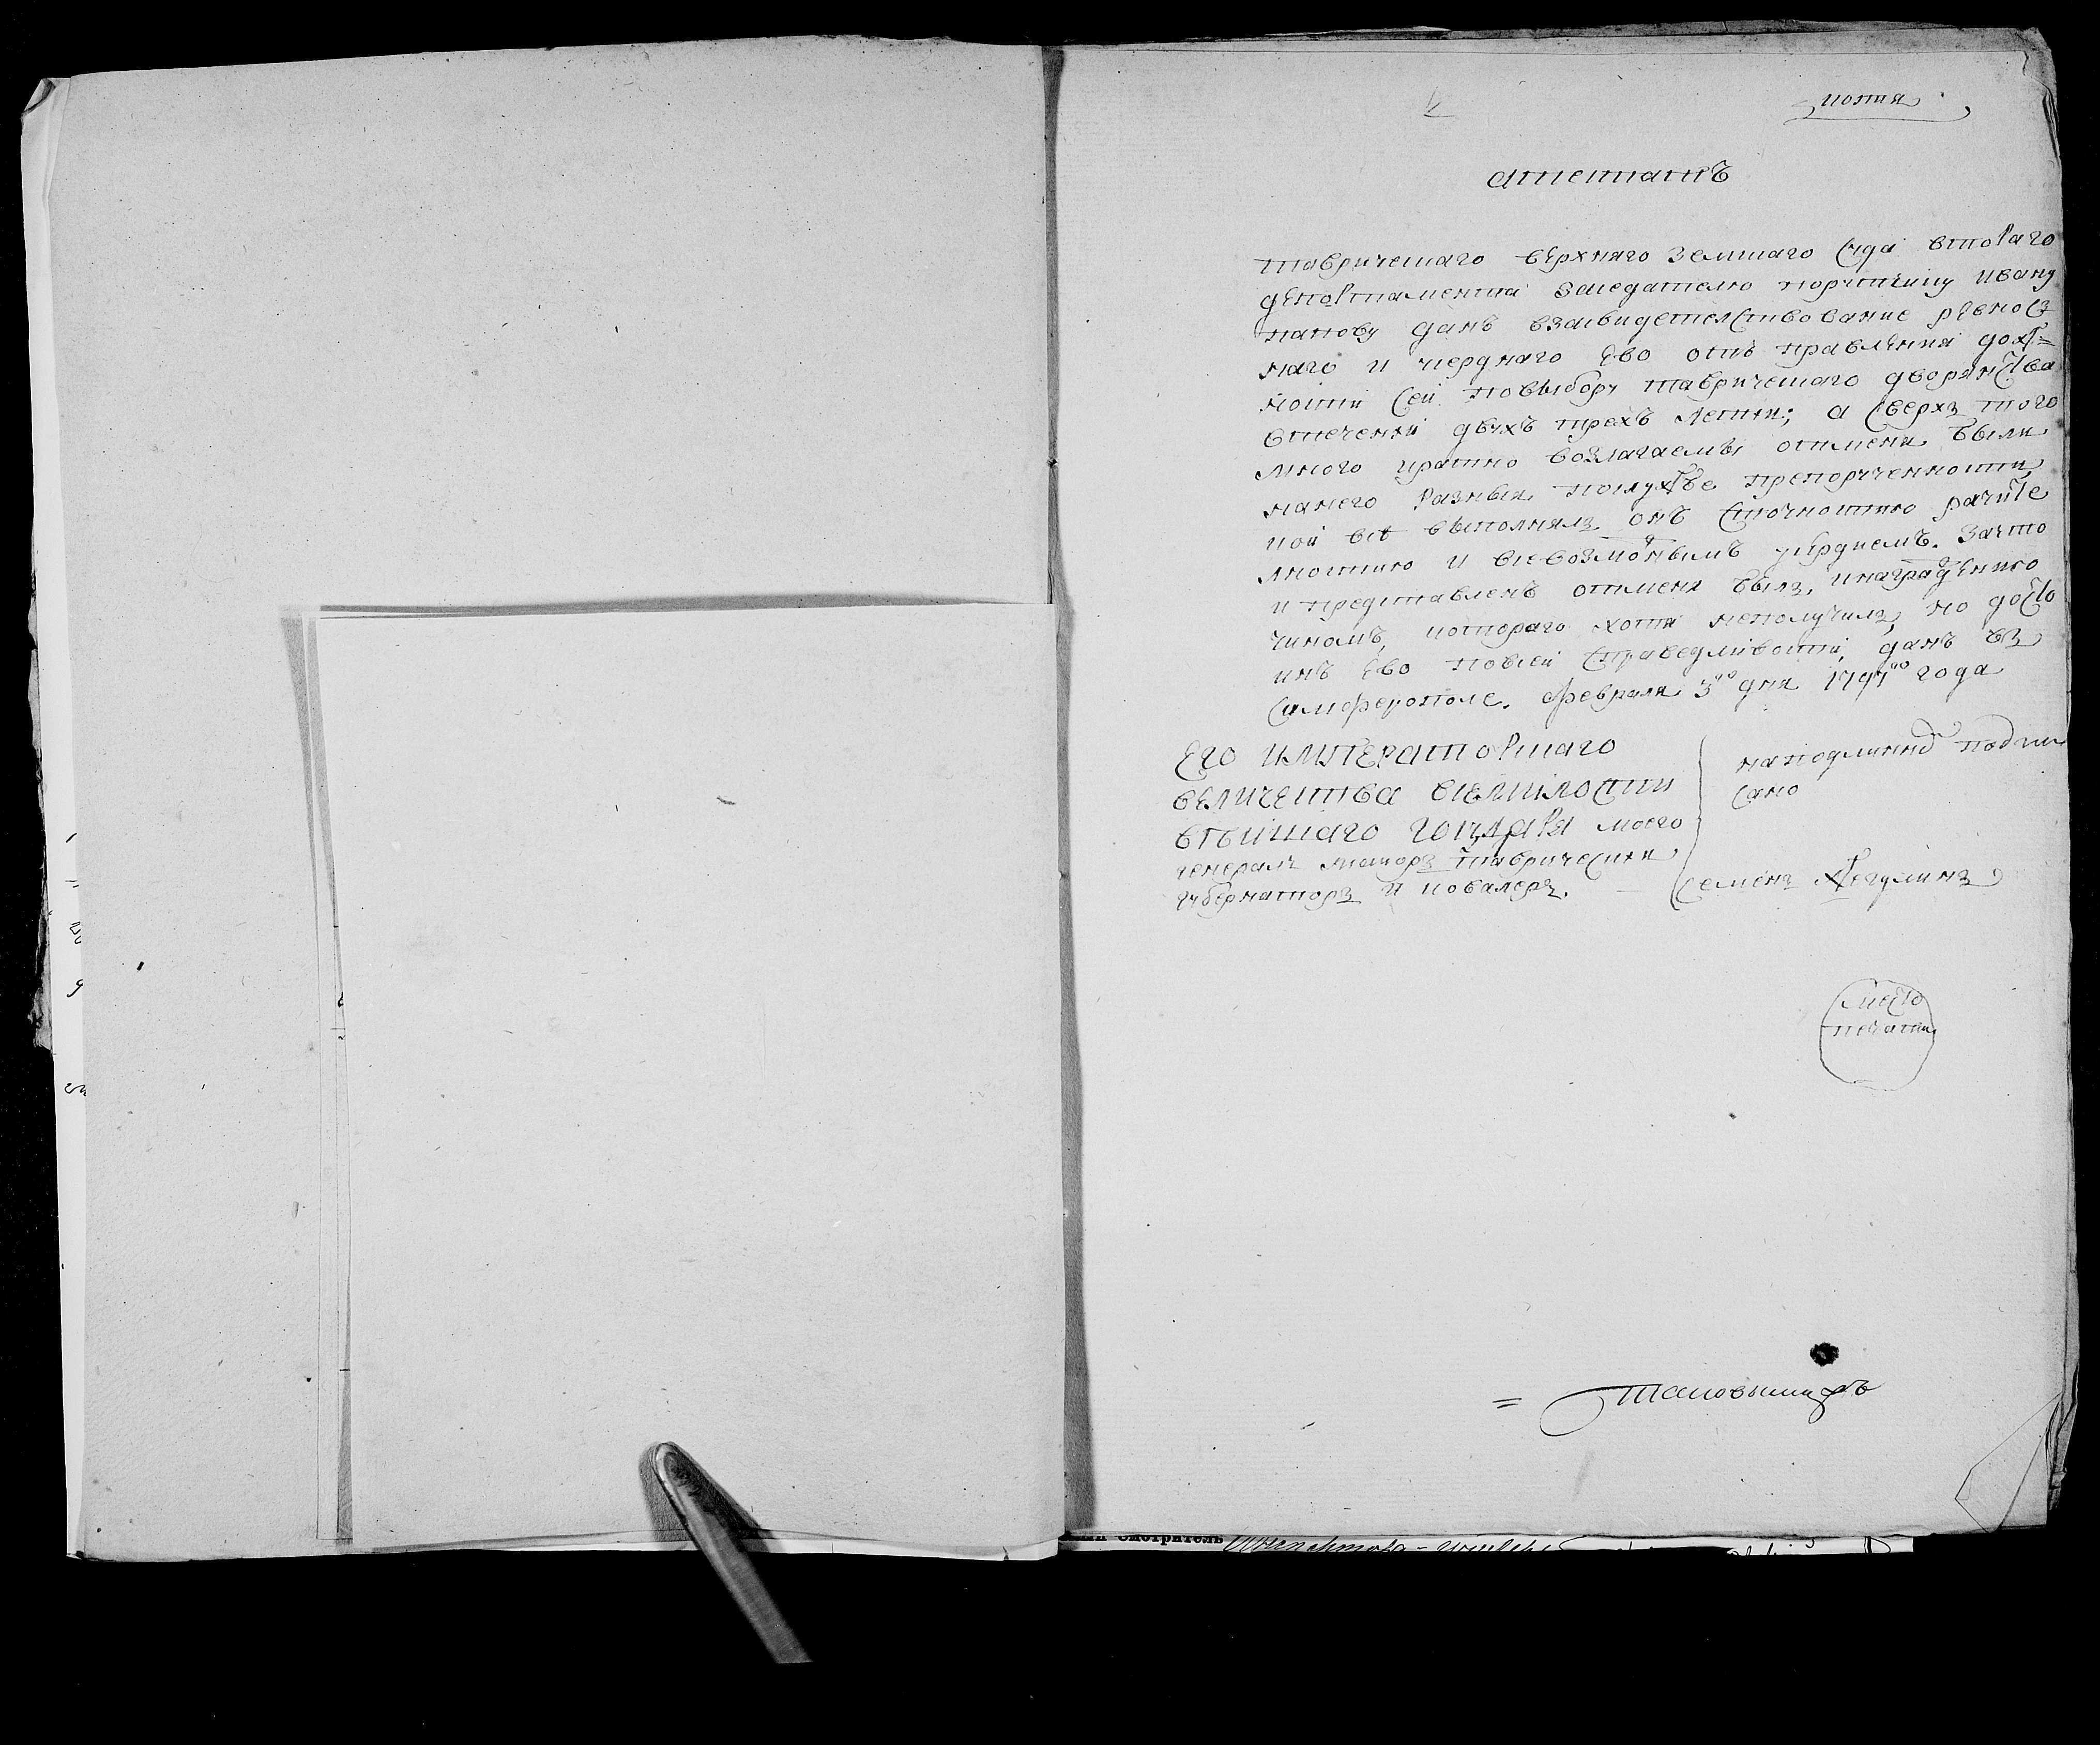 копия
аттестатъ
таврическаго верхняго земскаго суда втораго
департамента заседателю порутчику ивану
папову данъ взасвидетелствование ревнос
наго и усерднаго ево отъ правления долж=
ности сей повыбору таврическаго дворянства
втечении двухъ трехъ летии; а сверхъ того
много кратно возлагаемы отменя были
нанего разныя послужбе препорученности,
кои все выполнялъ онъ сточностию рачите
лностию и всевозможнымъ усердиемъ. Зачто
и представленъ отменя былъ, кнаграждению
чиномъ, котораго хотя неполучилъ, но досто
инъ ево повсей справедливости, данъ въ
симферополе. февраля 3го дня 1797го года
Его императорскаго
величества всемилости
вейшаго государя моего
генералъ маиоръ таврически
губернаторъ и ковалеръ.
наподлинной подпи
сано
семенъ Жегулинъ
место
печати
= Таковымже
смотритель